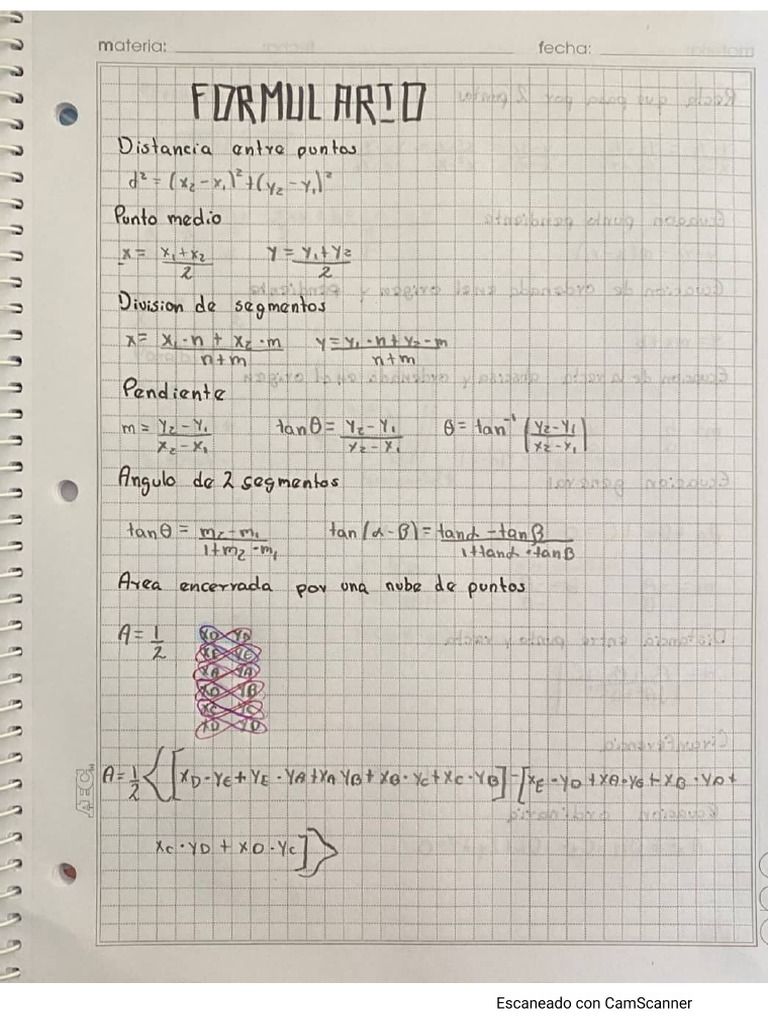 materia: fecha:
FORMULARIO
Distancia entre puntos
d² = (x₂ - x₁)² + (y₂ - y₁)²
Punto medio
x = (x₁ + x₂)/2 y = (y₁ + y₂)/2
Division de segmentos
x = (x₁ · n + x₂ · m)/(n + m) y = (y₁ · n + y₂ - m)/(n + m)
Pendiente
m = (y₂ - y₁)/(x₂ - x₁) tan θ = (y₂ - y₁)/(x₂ - x₁) θ = tan⁻¹ [(y₂ - y₁)/(x₂ - x₁)]
Angulo de 2 segmentos
tan θ = (m₂ - m₁)/(1 + m₂ - m₁) tan (α - β) = (tan α - tan β)/(1 + tan α · tan β)
Area encerrada por una nube de puntos
A = 1/2
XD YD
XE YE
XA YA
YB
XC YC
XD YD
A = 1/2 {[XD - YE + YE · YA + XA YB + XB · YC + XC · YB] - [XE - YD + XA · YE + XB · YA +
XC · YD + XD - YC]}
AEC
Escaneado con CamScanner